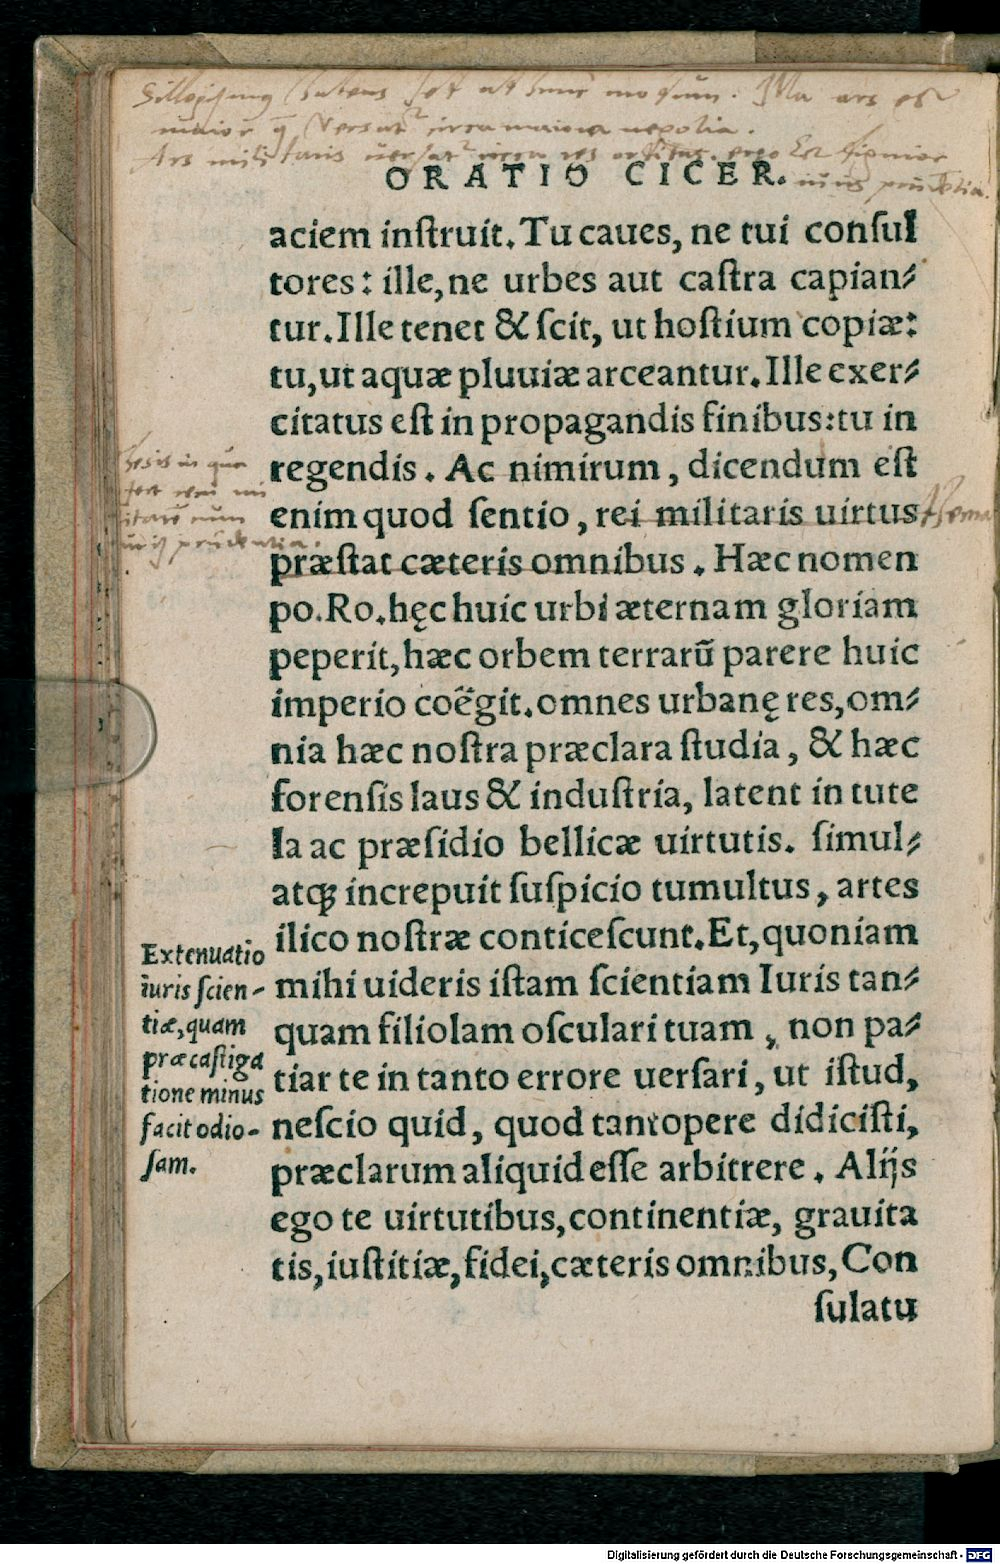 Sillogismus
maior q̃ versat᷑ circa maiora negotia.
Ars militaris uersat᷑ circa res ergo Est
ORATIO CICER.
aciem inſtruit. Tu caues, ne tui conſul
tores: ille, ne urbes aut caſtra capian⸗
tur. Ille tenet & ſcit, ut hoſtium copiæ:
tu, ut aquæ pluuiæ arceantur. Ille exer⸗
citatus eſt in propagandis finibus: tu in
regendis. Ac nimirum, dicendum eſt
enim quod ſentio, rei militaris uirtus
præſtat cæteris omnibus. Hæc nomen
po. Ro. hęc huic urbi æternam gloriam
peperit, hæc orbem terrarũ parere huic
imperio coëgit. omnes urbanę res, om⸗
nia hæc noſtra præclara ſtudia, & hæc
forenſis laus & induſtria, latent in tute
la ac præſidio bellicæ uirtutis. ſimul⸗
atq; increpuit ſuſpicio tumultus, artes
ilico noſtræ conticeſcunt. Et, quoniam
mihi uideris iſtam ſcientiam Iuris tan⸗
quam filiolam oſculari tuam, non pa⸗
tiar te in tanto errore uerſari, ut iſtud,
neſcio quid, quod tantopere didiciſti,
præclarum aliquid eſſe arbitrere. Alijs
ego te uirtutibus, continentiæ, grauita
tis, iuſtitiæ, fidei, cæteris omnibus, Con
ſulatu
Extenuatio
iuris ſcien-
tiæ, quam
præcaſtiga
tione minus
facit odio-
ſam.
Digitalisierung gefördert durch die Deutsche Forschungsgemeinschaft - DFG